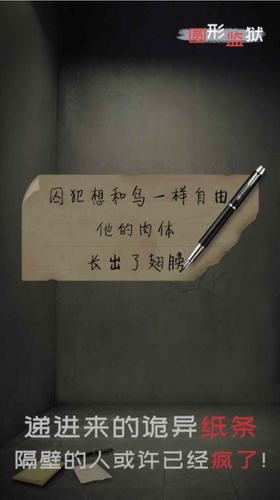 圆形监狱
囚犯想和鸟一样自由
他的肉体
长出了翅膀
递进来的诡异纸条
隔壁的人或许已经疯了!